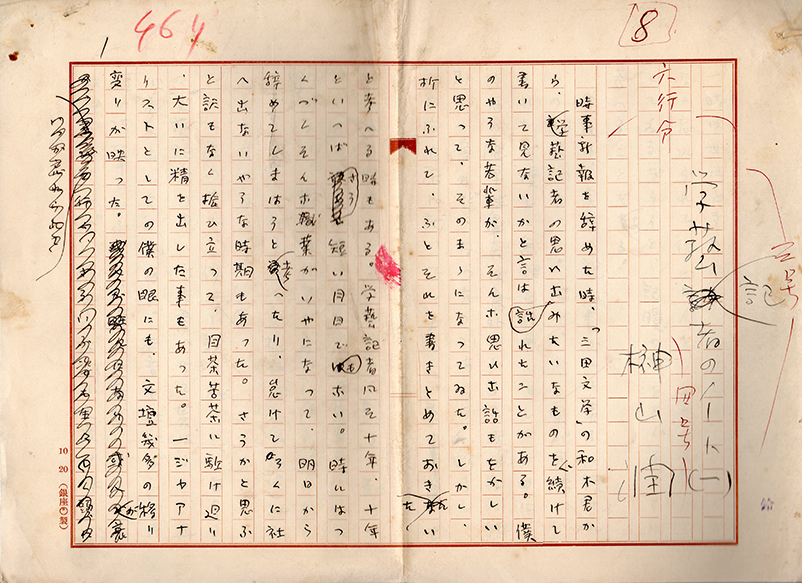 464
8
六行分
三号
学芸記者のノート(一)
四号
榊山潤
時事新報を辞めた時、「三田文学」の和木君か
ら、学藝記者の思い出みたいなものを続けて
書いて見ないかと言はれたことがある。僕
のやうな若輩が、そんな思ひ出話もをかしい
と思って、そのまゝになってゐた。しかし、
折にふれて、ふとそれを書きとめておきたい
と考へる時もある。学藝記者凡そ十年、十年
といっても さう短い月日ではない。時にはつ
くづくそんな職業がいやになって、明日から
辞めてしまはうと考ったり、怠けてろくに社
へ出ないやうな時期もあった。さうかと思ふ
と訳もなく捻ひ立って、目茶苦茶に駆け廻り
、大いに精を出した事もあった。一ジャアナ
リストとしての僕の眼にも、文壇幾多の移り
変りが映った。
10 20 (銀座 製)